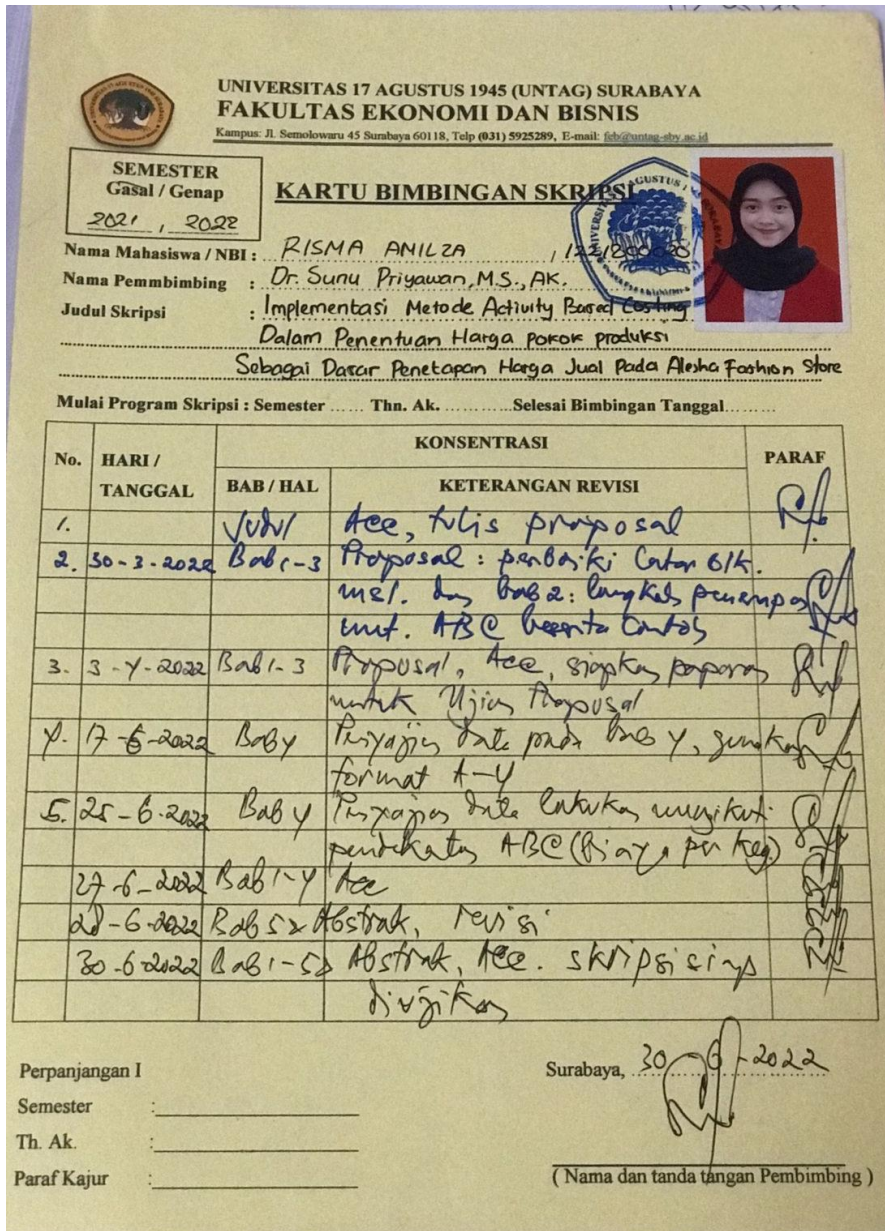 UNIVERSITAS 17 AGUSTUS 1945 (UNTAG) SURABAYA
FAKULTAS EKONOMI DAN BISNIS
Kampus: Jl. Semolowaru 45 Surabaya 60118, Telp (031) 5925289, E-mail: feb@untag-sby.ac.id
SEMESTER
Gasal / Genap
2021 , 2022
KARTU BIMBINGAN SKRIPSI
Nama Mahasiswa / NBI : RISMA AMILZA
Nama Pemmbimbing : Dr. Sunu Priyawan, M.S., AK.
Judul Skripsi : Implementasi Metode Activity Based Costing
Dalam Penentuan Harga pokok produksi
Sebagai Dasar Penetapan Harga Jual Pada Alesha Fashion Store
Mulai Program Skripsi : Semester ...... Thn. Ak. ............Selesai Bimbingan Tanggal.........
No. HARI / TANGGAL KONSENTRASI PARAF
BAB / HAL KETERANGAN REVISI
1. Judul Acc, tulis proposal
2. 30-3-2022 Bab 1-3 Proposal : perbaiki Latar blk.
msl. dan bab 2: langkah penerapan
unt. ABC beserta Contoh
3. 3-4-2022 Bab 1-3 Proposal, Acc, siapkan paparan
untuk Ujian Proposal
4. 17-6-2022 Bab 4 Penyajian data pada bab 4, gunakan
format A-4
5. 25-6-2022 Bab 4 Penyajian data lakukan mengikuti
pendekatan ABC (Biaya per keg)
27-6-2022 Bab 1-4 Acc
28-6-2022 Bab 5 & Abstrak, revisi
30-6-2022 Bab 1-5 & Abstrak, Acc. skripsi siap
diujikan
Perpanjangan I
Surabaya, 30-6-2022
Semester :
Th. Ak. :
Paraf Kajur :
( Nama dan tanda tangan Pembimbing )